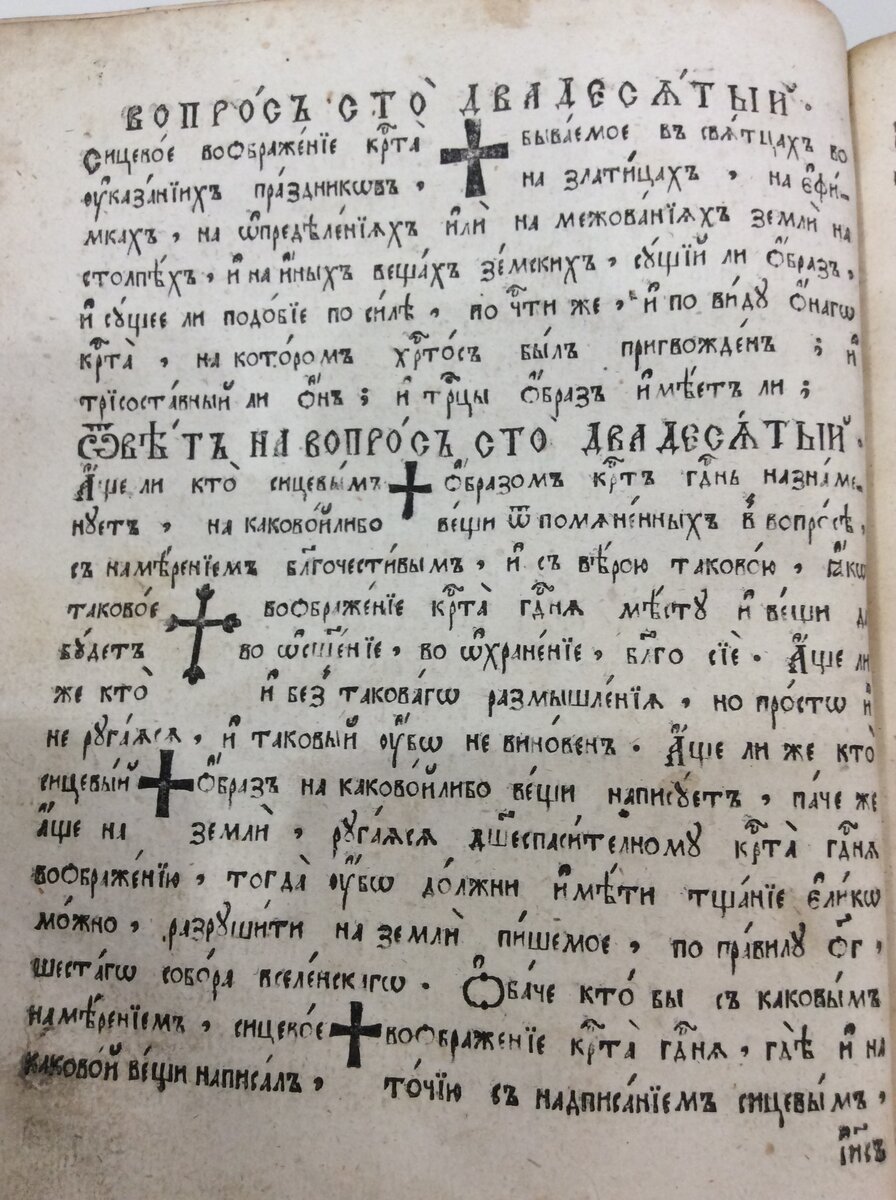 ВОПРО́СЪ СТО̀ ДВАДЕСѦ́ТЫЙ.
Сицево́е воѻбраже́нїе кр҇та̀ ✚ быва́емое въ свѧ́тцахъ во
ᲂу҆каза́нїихъ пра́здникѡвъ, на злати́цахъ, на є҆фи́-
мкахъ, на ѡ҆предѣле́нїѧхъ и҆лѝ на межова́нїѧхъ землѝ на
столпѣ́хъ, и҆ на и҆́ныхъ веща́хъ зе́мскихъ, су́щїй ли ѻ҆́бразъ,
и҆ су́щее ли подо́бїе по си́лѣ, по ч҇ти же, и҆ по ви́ду ѻ҆́нагѡ
кр҇та̀, на кото́ромъ хр҇то́съ бы́лъ пригвожде́нъ; и҆
трїсоста́вный ли ѻ҆́нъ; и҆ тр҇цы ѻ҆́бразъ и҆мѣ́етъ ли;
Ѿвѣ́тъ НА ВОПРО́СЪ СТО̀ ДВАДЕСѦ́ТЫЙ.
А҆́ще ли кто̀ сицевы́мъ ✚ ѻ҆́бразомъ кр҇тъ гд҇нь назна́ме-
нуетъ, на каково́йлибо ве́щи ѿ помѧне́нныхъ в̾ вопро́сѣ,
съ намѣ́ренїемъ бл҃гочести́вымъ, и҆ съ вѣ́рою таково́ю, ꙗ҆́кѡ
таково́е воѻбраже́нїе кр҇та̀ гд҇нѧ мѣ́сту и҆ ве́щи да
бу́детъ во ѡ҆сщ҃е́нїе, во ѡ҆хране́нїе, бл҃го сїѐ. А҆́ще ли
же кто̀ и҆ без̾ такова́гѡ размышле́нїѧ, но про́стѡ и҆
не руга́ѧсѧ, и҆ таковый ᲂу҆́бѡ не вино́венъ. А҆́ще ли же кто̀
сицевы́й ✚ ѻ҆́бразъ на каково́йлибо ве́щи написꙋ́етъ, па́че же
а҆́ще на землѝ, руга́ѧсѧ дш҃еспаси́телному кр҇та̀ гд҇нѧ
воѻбраже́нїю, тогда̀ ᲂу҆́бѡ до́лжни и҆мѣ́ти тща́нїе є҆ли́кѡ
мо́жно, разруши́ти на землѝ пи́шемое, по пра́вилу ѻ҃г,
шеста́гѡ собо́ра вселе́нскагѡ. Ѻ҆ба́че кто́ бы съ каковы́мъ
намѣ́ренїемъ, сицево́е ✚ воѻбраженїе кр҇та̀ гд҇нѧ, гдѣ̀ и҆ на
каково́й ве́щи написа́лъ, то́чїю съ надписа́нїемъ сицевы́мъ,
і҆и҃съ